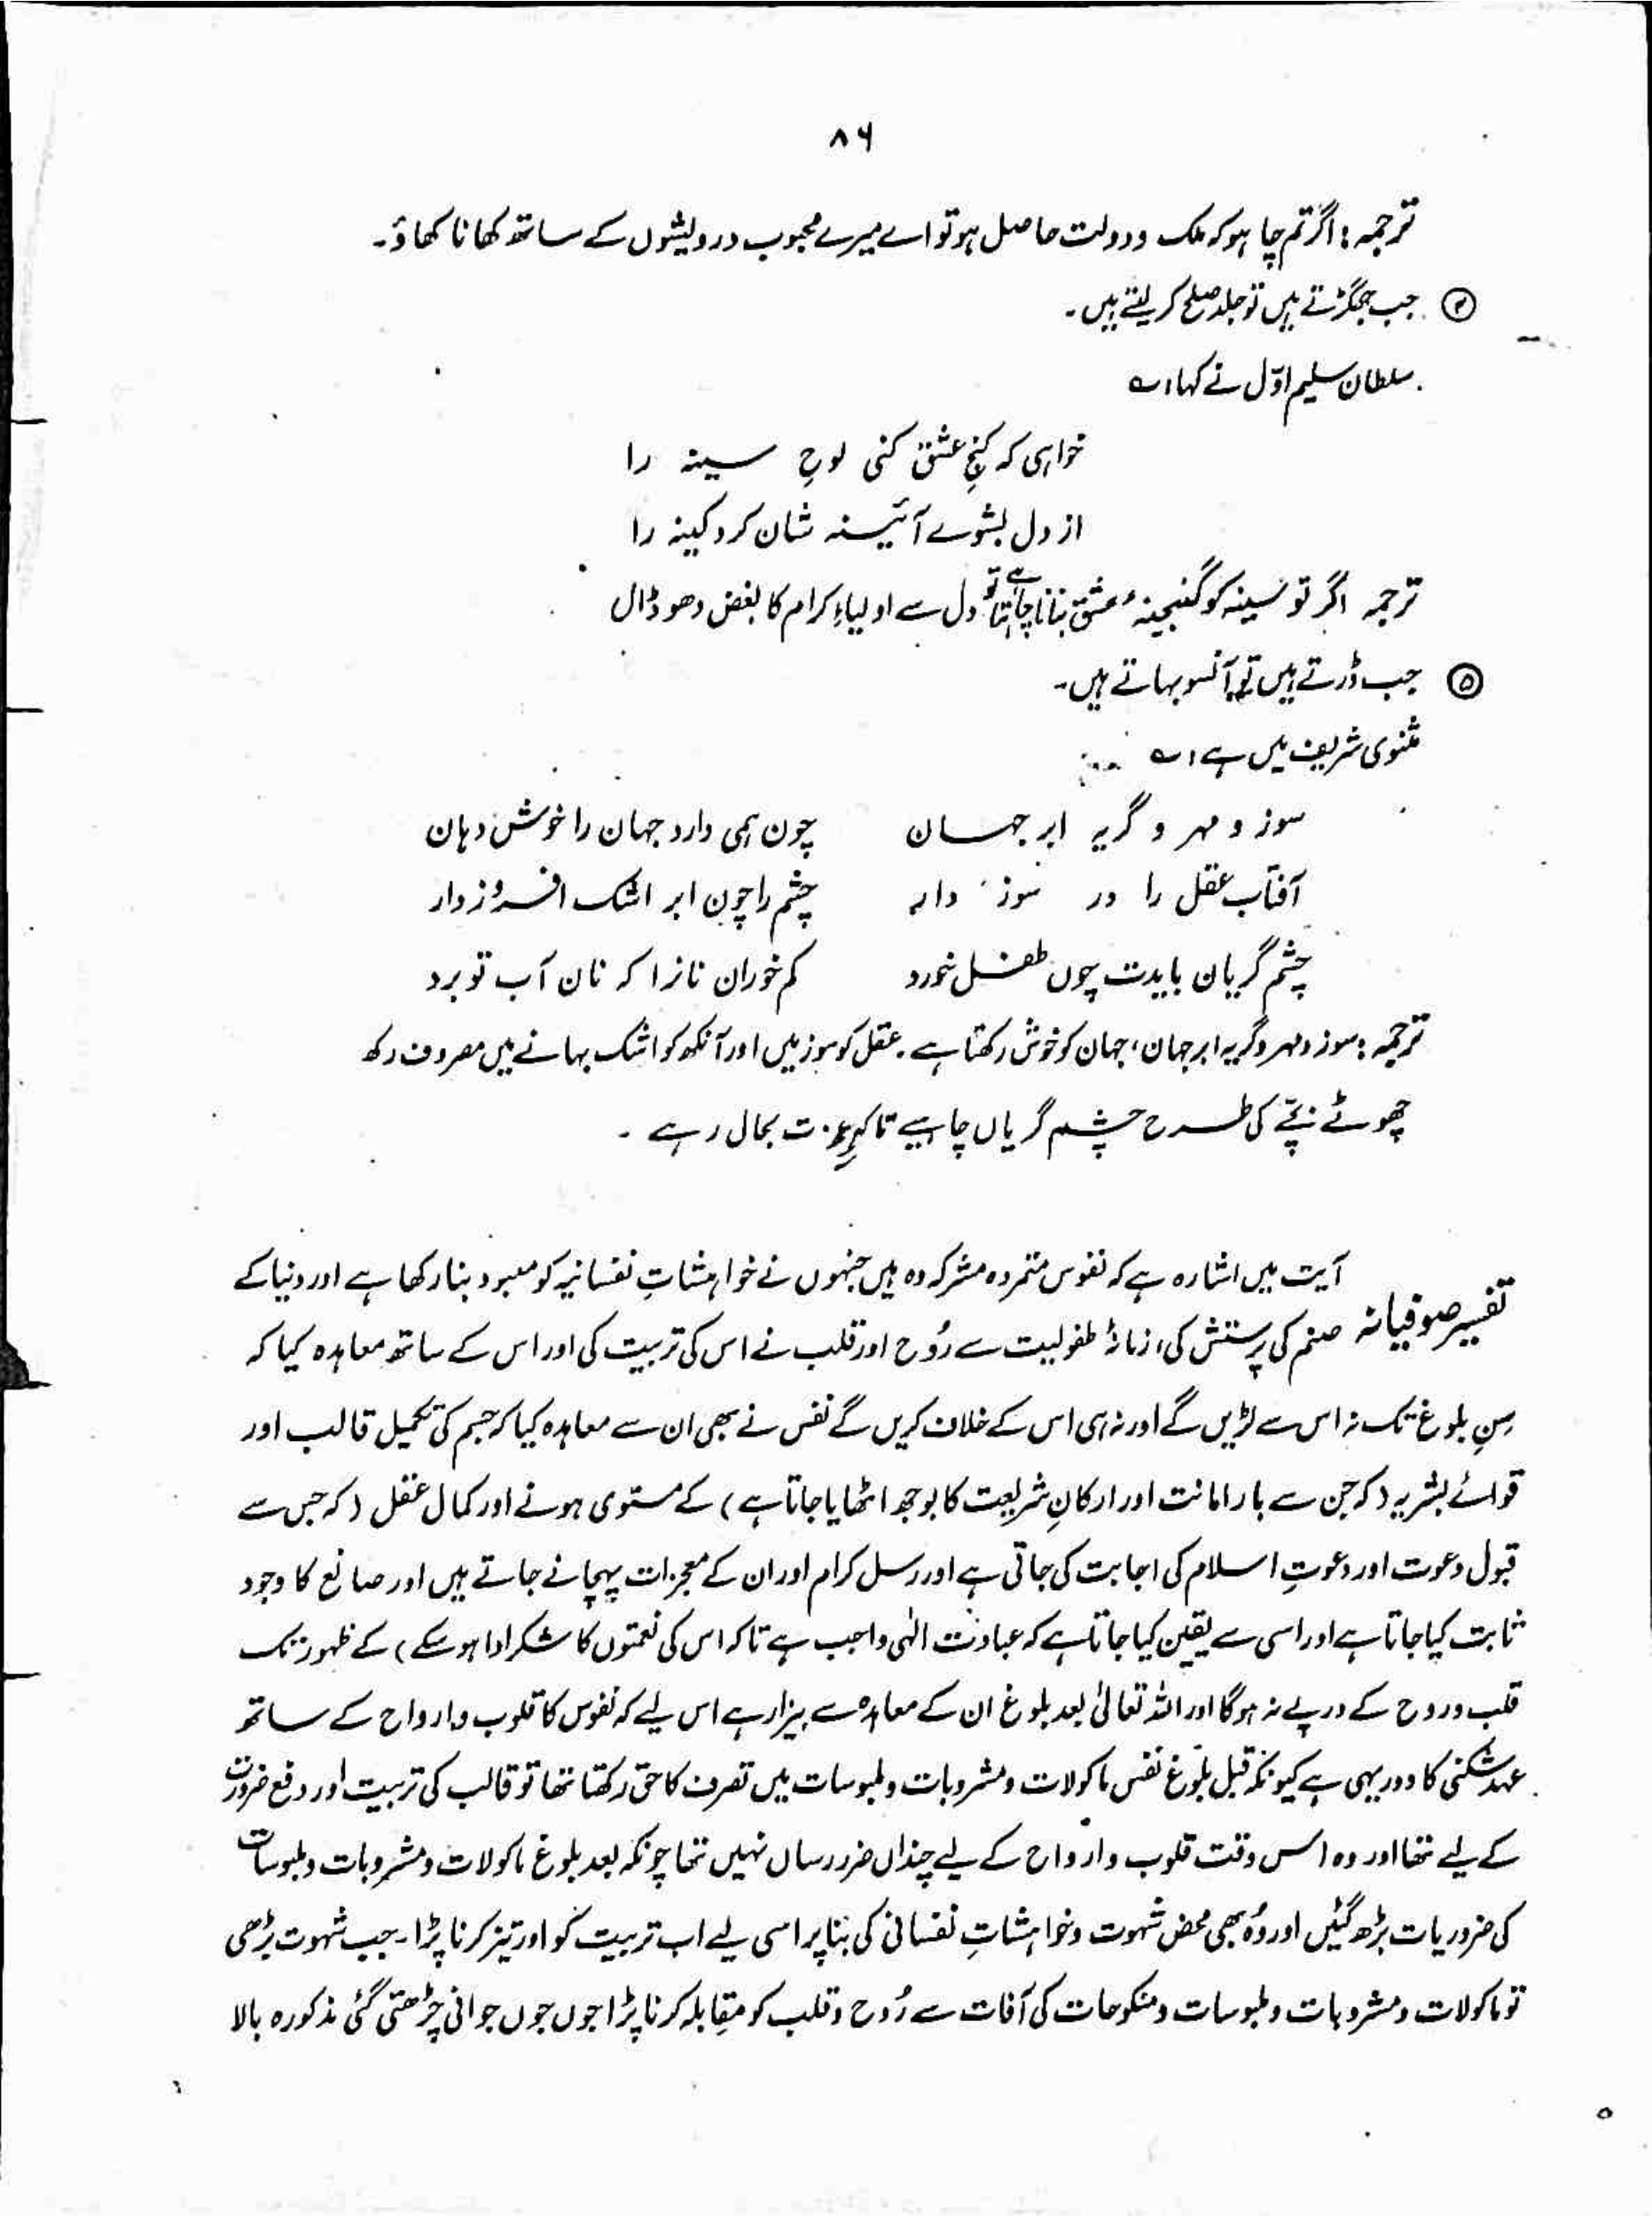 ۸۶
ترجمہ : اگر تم چاہو کہ ملک و دولت حاصل ہو تو اے میرے محبوب درویشوں کے ساتھ کھانا کھاؤ۔
④ جب جھگڑتے ہیں تو جلد صلح کر لیتے ہیں۔
سلطان سلیم اوّل نے کہا ؎
خواہی کہ گنجِ عشق کنی لوحِ سینہ را
از دل بشوے آئینہ شان کرد کینہ را
ترجمہ اگر تو سینہ کو گنجینۂ عشق بنانا چاہتا ہے تو دل سے اولیاءِ کرام کا بغض دھو ڈال
⑤ جب ڈرتے ہیں تو آنسو بہاتے ہیں۔
مثنوی شریف میں ہے ؎
سوز و مہر و گریہ ابر جہان چون ہمی دارد جہان را خوش دہان
آفتاب عقل را در سوز دار چشم را چون ابر اشک افروز دار
چشم گریان بایدت چوں طفل خورد کم خوران نانرا کہ نان آب تو برد
ترجمہ : سوز و مہر و گریہ ابر جہان ، جہان کو خوش رکھتا ہے ۔ عقل کو سوز میں اور آنکھ کو اشک بہانے میں مصروف رکھ
چھوٹے بچّے کی طرح چشم گریاں چاہیے تاکہ عزت بحال رہے ۔
تفسیر صوفیانہ آیت میں اشارہ ہے کہ نفوس متمردہ مشرکہ وہ ہیں جنہوں نے خواہشاتِ نفسانیہ کو معبود بنا رکھا ہے اور دنیا کے
صنم کی پرستش کی، زمانۂ طفولیت سے رُوح اور قلب نے اس کی تربیت کی اور اس کے ساتھ معاہدہ کیا کہ
سِنِ بلوغ تک نہ اس سے لڑیں گے اور نہ ہی اس کے خلاف کریں گے نفس نے بھی ان سے معاہدہ کیا کہ جسم کی تکمیل قالب اور
قوائے بشریہ (کہ جن سے بار امانت اور ارکانِ شریعت کا بوجھ اٹھایا جاتا ہے) کے مستوی ہونے اور کمال عقل (کہ جس سے
قبول دعوت اور دعوتِ اسلام کی اجابت کی جاتی ہے اور رسل کرام اور ان کے معجزات پہچانے جاتے ہیں اور صانع کا وجود
ثابت کیا جاتا ہے اور اسی سے یقین کیا جاتا ہے کہ عبادت الٰہی واجب ہے تاکہ اس کی نعمتوں کا شکر ادا ہو سکے) کے ظہور تک
قلب و روح کے درپے نہ ہوگا اور اللہ تعالیٰ بعد بلوغ ان کے معاہدہ سے بیزار ہے اس لیے کہ نفوس کا قلوب و ارواح کے ساتھ
عہد شکنی کا دور یہی ہے کیونکہ قبل بلوغ نفس ماکولات و مشروبات و ملبوسات میں تصرف کا حق رکھتا تھا تو قالب کی تربیت اور دفع ضرورت
کے لیے تھا اور وہ اس وقت قلوب و ارواح کے لیے چنداں ضرر رساں نہیں تھا چونکہ بعد بلوغ ماکولات و مشروبات و ملبوسات
کی ضروریات بڑھ گئیں اور وُہ بھی محض شہوت و خواہشاتِ نفسانی کی بنا پر اسی لیے اب تربیت کو اور تیز کرنا پڑا۔ جب شہوت بڑھی
تو ماکولات و مشروبات و ملبوسات و منکوحات کی آفات سے رُوح و قلب کو مقابلہ کرنا پڑا جوں جوں جوانی چڑھتی گئی مذکورہ بالا